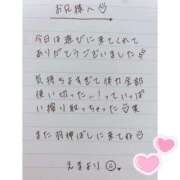 お兄様へ♡
今日は遊びに来てくれて
ありがとうございました♡
気持ちよすぎて体力全部
使い切ったー！っていっぱ
い搾り取っちゃった♡笑
また羽伸ばしに来てね♡
えまより